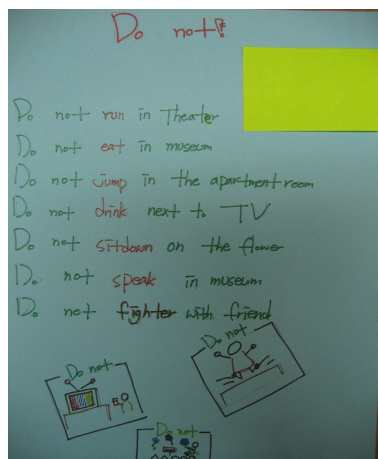 Do not!
Do not run in Theater
Do not eat in museum
Do not jump in the apartment room
Do not drink next to TV
Do not sitdown on the flower
Do not speak in museum
Do not fighter with friend
Do not
Do not
Do not